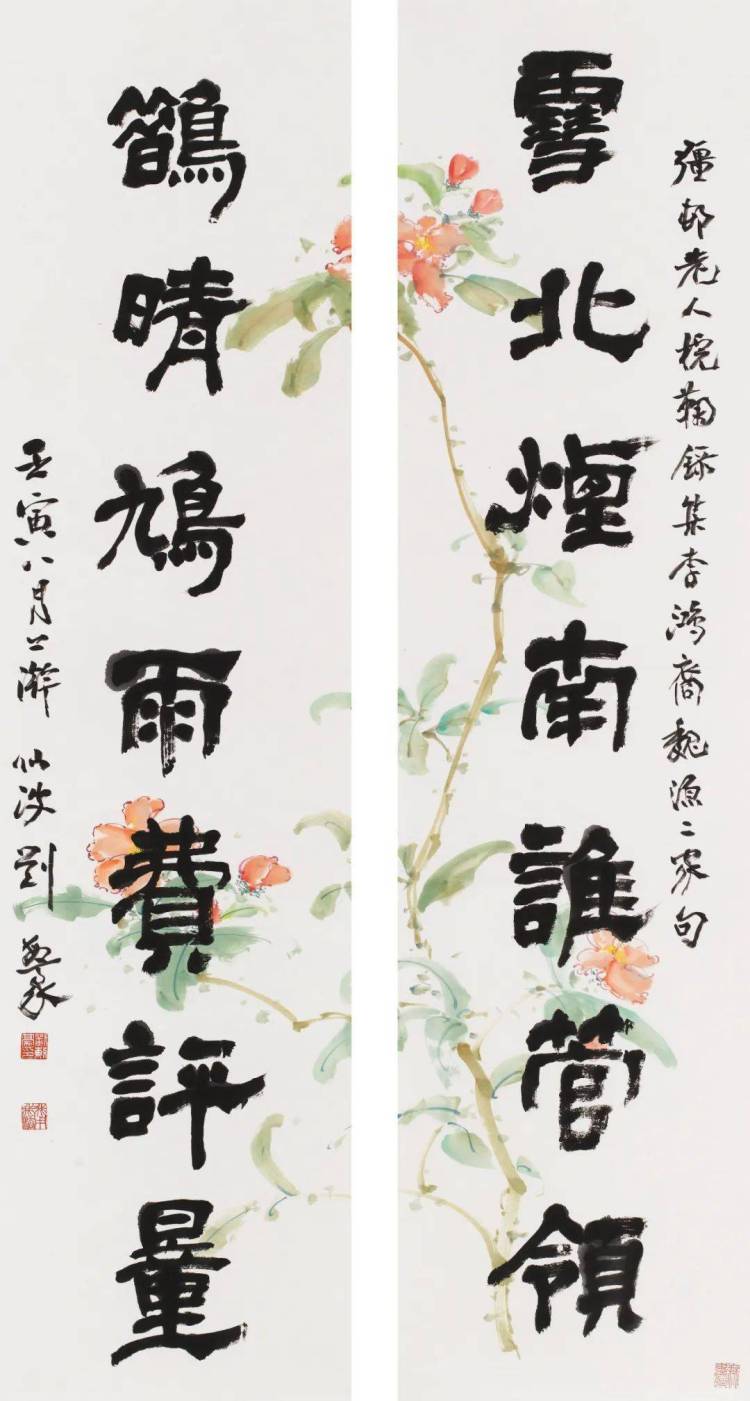 彊邨老人梡鞠錄集李鴻裔魏源二家句
雪北煙南誰管領
鵲晴鳩雨費評量
壬寅八月上澣 劉